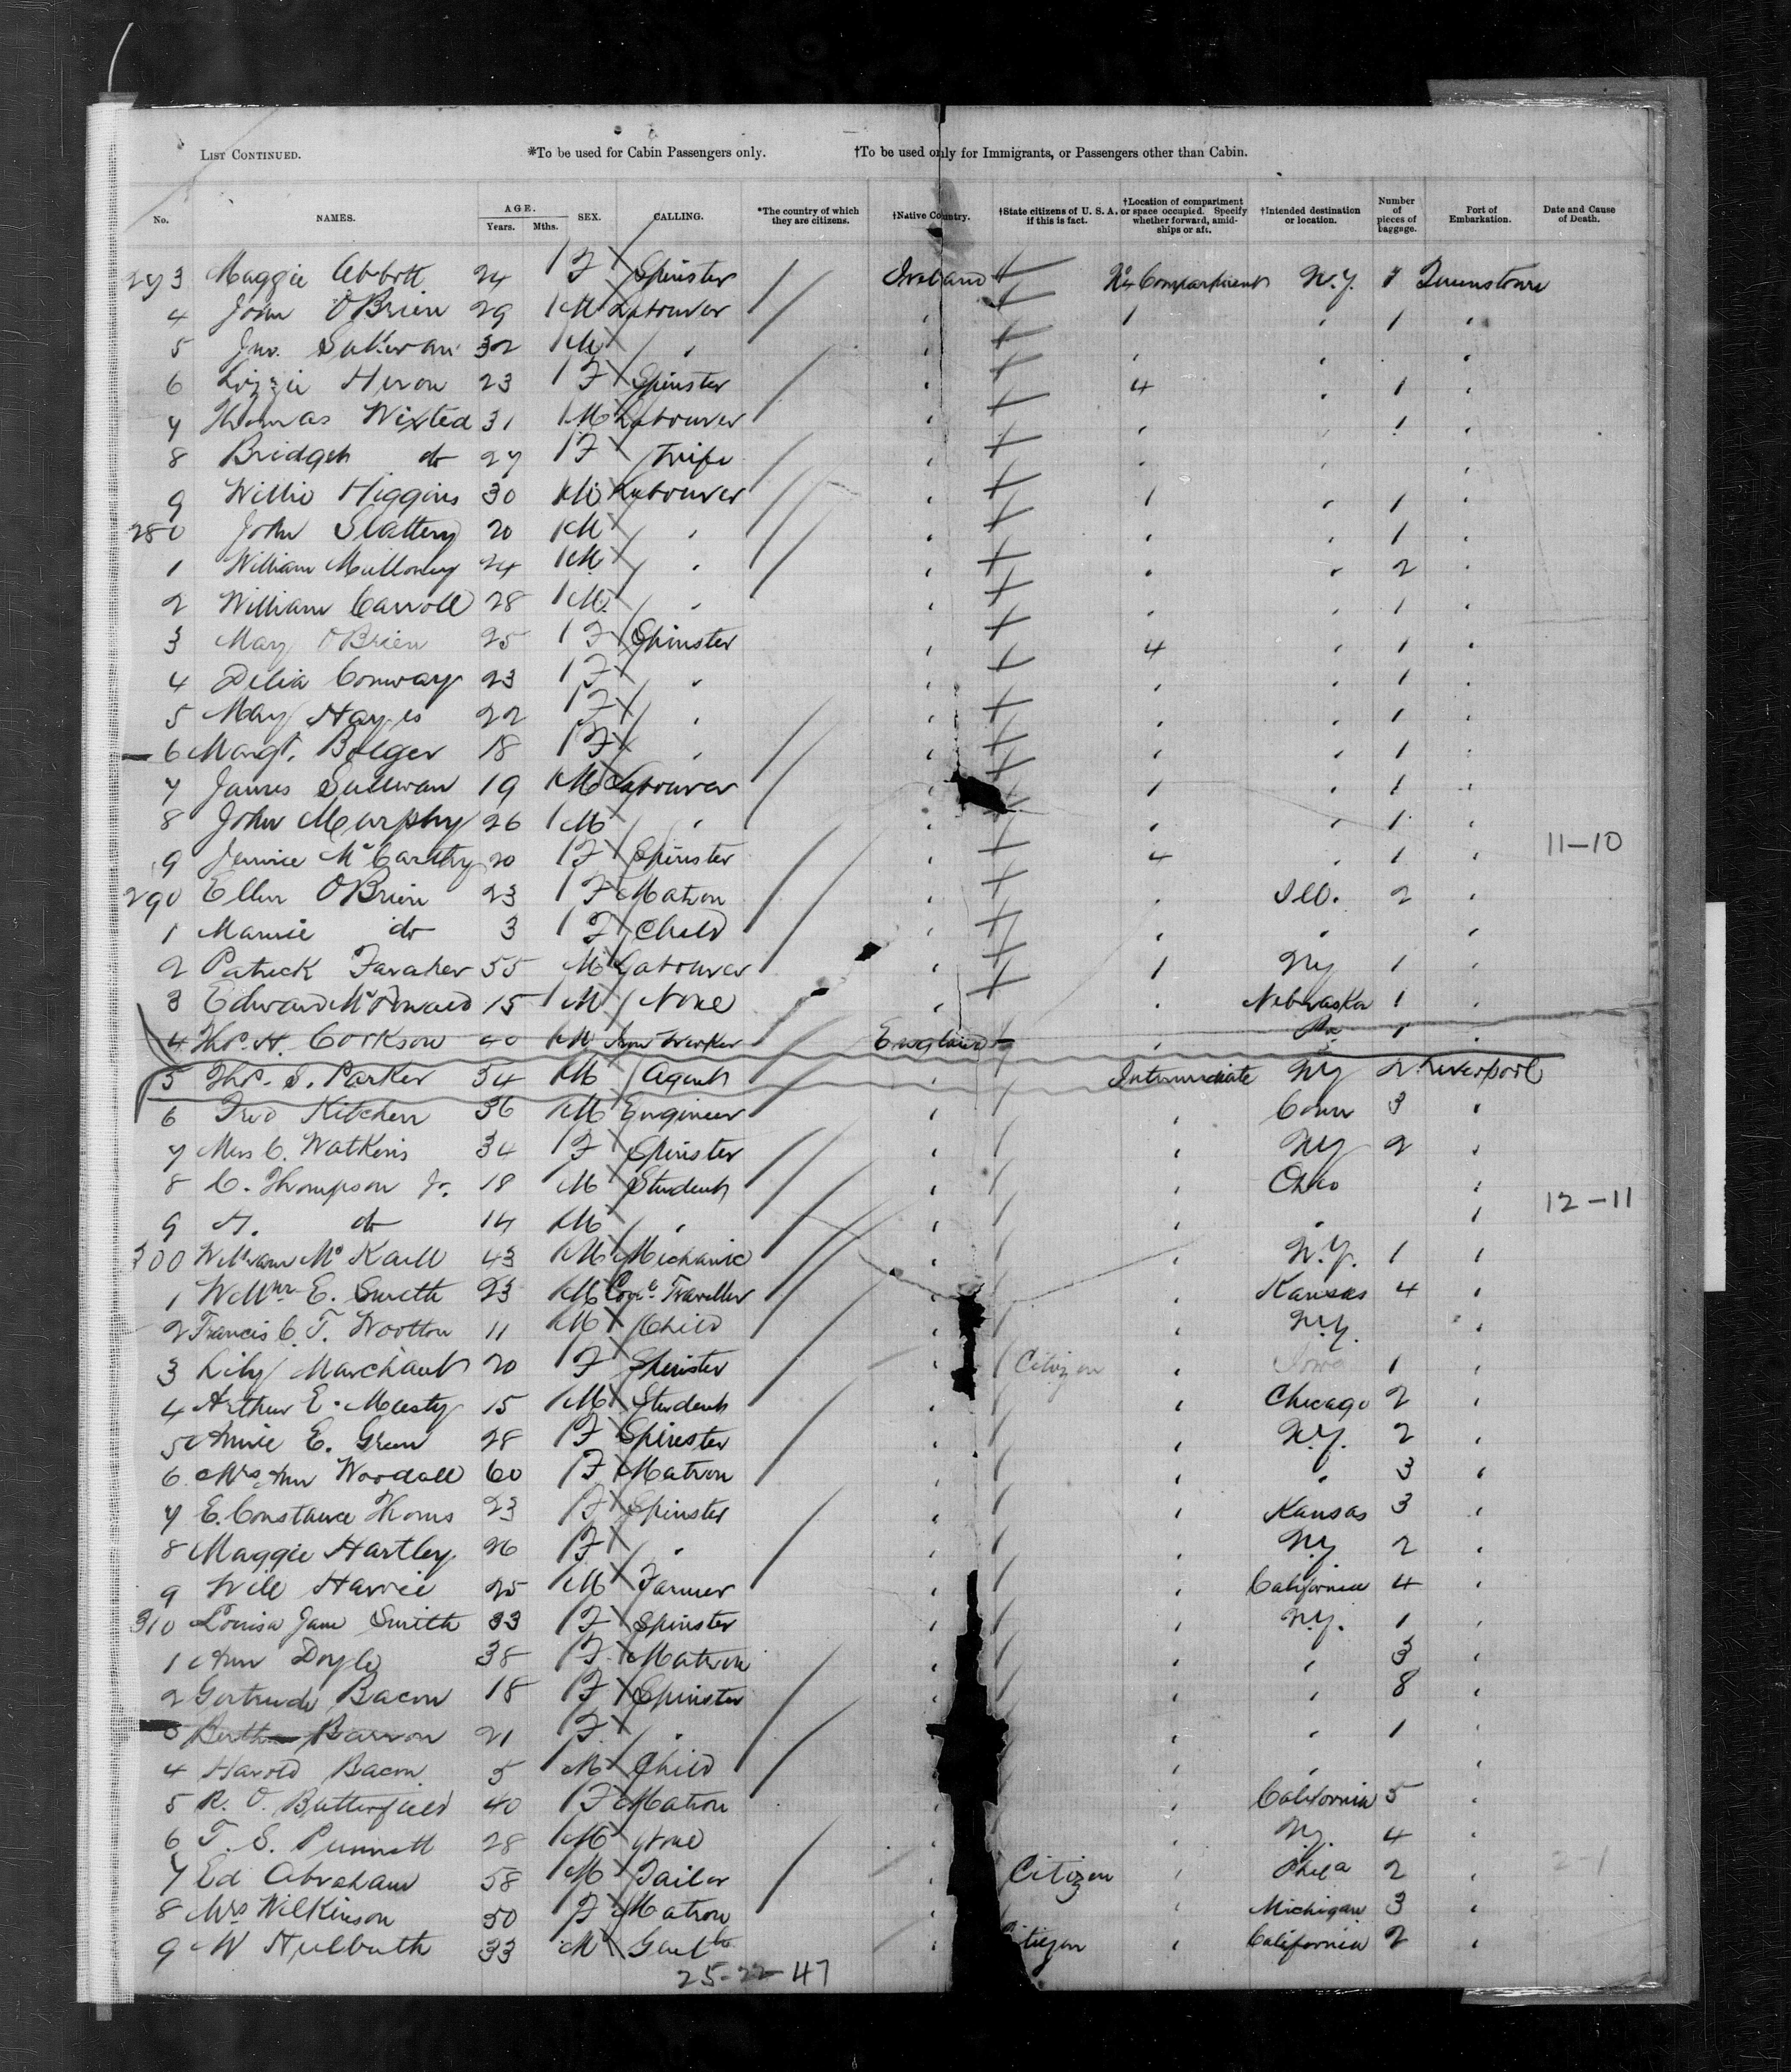 LIST CONTINUED. *To be used for Cabin Passengers only. †To be used only for Immigrants, or Passengers other than Cabin.
No. NAMES. AGE. Years. Mths. SEX. CALLING. *The country of which they are citizens. †Native Country. †State citizens of U. S. A. if this is fact. †Location of compartment or space occupied. Specify whether forward, amidships or aft. †Intended destination or location. Number of pieces of baggage. Port of Embarkation. Date and Cause of Death.
273 Maggie Abbott 24 F Spinster Ireland No 4 Compartment N.Y. 1 Queenstown
4 John O'Brien 29 M Labourer ' 1 ' 1 '
5 Jno. Sullivan 32 M ' ' ' ' '
6 Lizzie Heron 23 F Spinster ' 4 ' 1 '
7 Thomas Wixted 31 M Labourer ' ' ' 1 '
8 Bridget do 27 F Wife ' ' ' '
9 Willie Higgins 30 M Labourer ' 1 ' 1 '
280 John Slattery 20 M ' ' ' ' 1 '
1 William Mulloney 24 M ' ' ' ' 2 '
2 William Carroll 28 M ' ' ' ' 1 '
3 May O'Brien 25 F Spinster ' 4 ' 1 '
4 Delia Conway 23 F ' ' ' ' 1 '
5 May Hayes 22 F ' ' ' ' 1 '
6 Margt. Bolger 18 F ' ' ' ' 1 '
7 James Sullivan 19 M Labourer ' 1 ' 1 '
8 John Murphy 26 M ' ' ' ' 1 '
9 Jennie McCarthy 20 F Spinster ' 4 ' 1 ' 11-10
290 Ellen O'Brien 23 F Matron ' ' Ill. 2 '
1 Mamie do 3 F Child ' ' ' '
2 Patrick Faraher 55 M Labourer ' 1 NY 1 '
3 Edward McDonald 15 M None ' ' Nebraska 1 '
4 Thos. H. Corkson 40 M Iron Worker England ' Pa 1 '
5 Thos. S. Parker 34 M Agent ' Intermediate NY 2 Liverpool
6 Fred Kitchen 36 M Engineer ' ' Conn 3 '
7 Miss C. Watkins 34 F Spinster ' ' NY 2 '
8 C. Thompson Jr. 18 M Student ' ' Ohio '
9 A. do 14 M ' ' ' ' ' 12-11
300 William Mc 43 M Mechanic ' ' N.Y. 1 '
1 Willm E. Smith 23 M Comc. Traveller ' ' Kansas 4 '
2 Francis C. T. Wootton 11 M Child ' ' N.Y. '
3 Lily Marchant 20 F Spinster ' Citizen ' Iowa 1 '
4 Arthur E. 15 M Student ' ' Chicago 2 '
5 Annie E. Green 28 F Spinster ' ' N.Y. 2 '
6 Mrs Ann Woodall 60 F Matron ' ' ' 3 '
7 E. Constance Thoms 23 F Spinster ' ' Kansas 3 '
8 Maggie Hartley 26 F ' ' ' N.Y. 2 '
9 Will Harrie 25 M Farmer ' ' California 4 '
310 Louisa Jane Smith 33 F Spinster ' ' N.Y. 1 '
1 Ann Doyle 38 F Matron ' ' ' 3 '
2 Gertrude Bacon 18 F Spinster ' ' ' 8 '
3 Bertha Barron 21 F ' ' ' ' 1 '
4 Harold Bacon 5 M Child ' ' '
5 R. O. Butterfield 40 F Matron ' California 5 '
6 T. S. Punnett 28 M None ' ' N.Y. 4 '
7 Ed Abraham 58 M Tailor ' Citizen ' Phila 2 ' 2-1
8 Mrs Wilkinson 50 F Matron ' ' Michigan 3 '
9 W Hulbuth 33 M Gentln ' itizen ' California 2 '
25-22-47